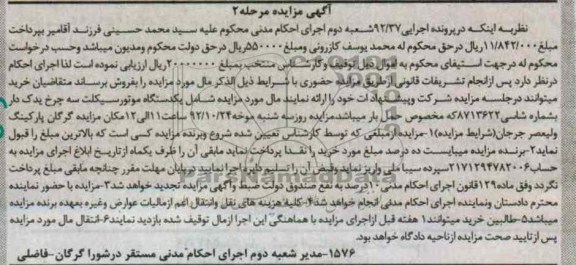 آگهی مزایده مرحله۲
نظربه اینکه درپرونده اجرایی۹۲/۳۷شعبه دوم اجرای احکام مدنی محکوم علیه سید محمد حسینی فرزند آقامیر بپرداخت
مبلغ۱۱/۸۴۲/۰۰۰ریال درحق محکوم له محمد یوسف کازرونی ومبلغ۵۵۰۰۰۰ریال درحق دولت محکوم ومدیون میباشد وحسب درخواست
محکوم له درجهت استیفای محکوم به اموال ذیل توقیف وکارشناس منتخب بمبلغ ۲۰۰۰۰۰۰۰ریال ارزیابی نموده است لذا اجرای احکام
درنظر دارد پس ازانجام تشریفات قانونی ازطریق مزایده حضوری با شرایط ذیل الذکر مال مورد مزایده را بفروش برساند متقاضیان خرید
میتوانند درجلسه مزایده شرکت وپیشنهادات خود را ارائه نمایند مال مورد مزایده شامل یکدستگاه موتورسیکلت سه چرخ یدک دار
بشماره شاسی۸۷۱۳۶۲۲که مخصوص حمل بار میباشد.مزایده روزسه شنبه مورخه۹۲/۱۰/۲۴ ساعت۱۱الی۱۲مکان مزایده گرگان پارکینگ
ولیعصر جرجان(شرایط مزایده)۱-مزایده ازمبلغی که توسط کارشناس تعیین شده شروع وبرنده مزایده کسی است که بالاترین مبلغ را قبول
نماید۲-برنده مزایده میبایست ده درصد مبلغ مورد خرید را نقدا پرداخت نماید مابقی آن را ظرف یکماه ازتاریخ ابلاغ اجرای مزایده به
حساب۲۱۷۱۲۹۴۷۸۲۰۰۶سپرده سیبا ملی واریز نماید وقبض آن را تسلیم دایره اجرا نماید در پایان مهلت مقرر چنانچه مابقی مبلغ پرداخت
نگردد وفق ماده۱۲۹قانون اجرای احکام مدنی۱۰درصد به نفع صندوق دولت ضبط وآگهی مزایده تجدید خواهد شد۳-مزایده با حضور نماینده
محترم دادستان ونماینده اجرای احکام مدنی انجام خواهد شد۴-کلیه هزینه های نقل وانتقال اعم ازمالیات عوارض وغیره بعهده برنده مزایده
میباشد۵-طالبین خرید میتوانند۱ هفته قبل ازاجرای مزایده با هماهنگی این اجرا ازمال توقیف شده بازدید نمایند۶-انتقال مال مورد مزایده
پس ازتایید صحت مزایده ازناحیه دادگاه خواهد بود.
۱۵۷۶-مدیر شعبه دوم اجرای احکام مدنی مستقر درشورا گرگان-فاضلی